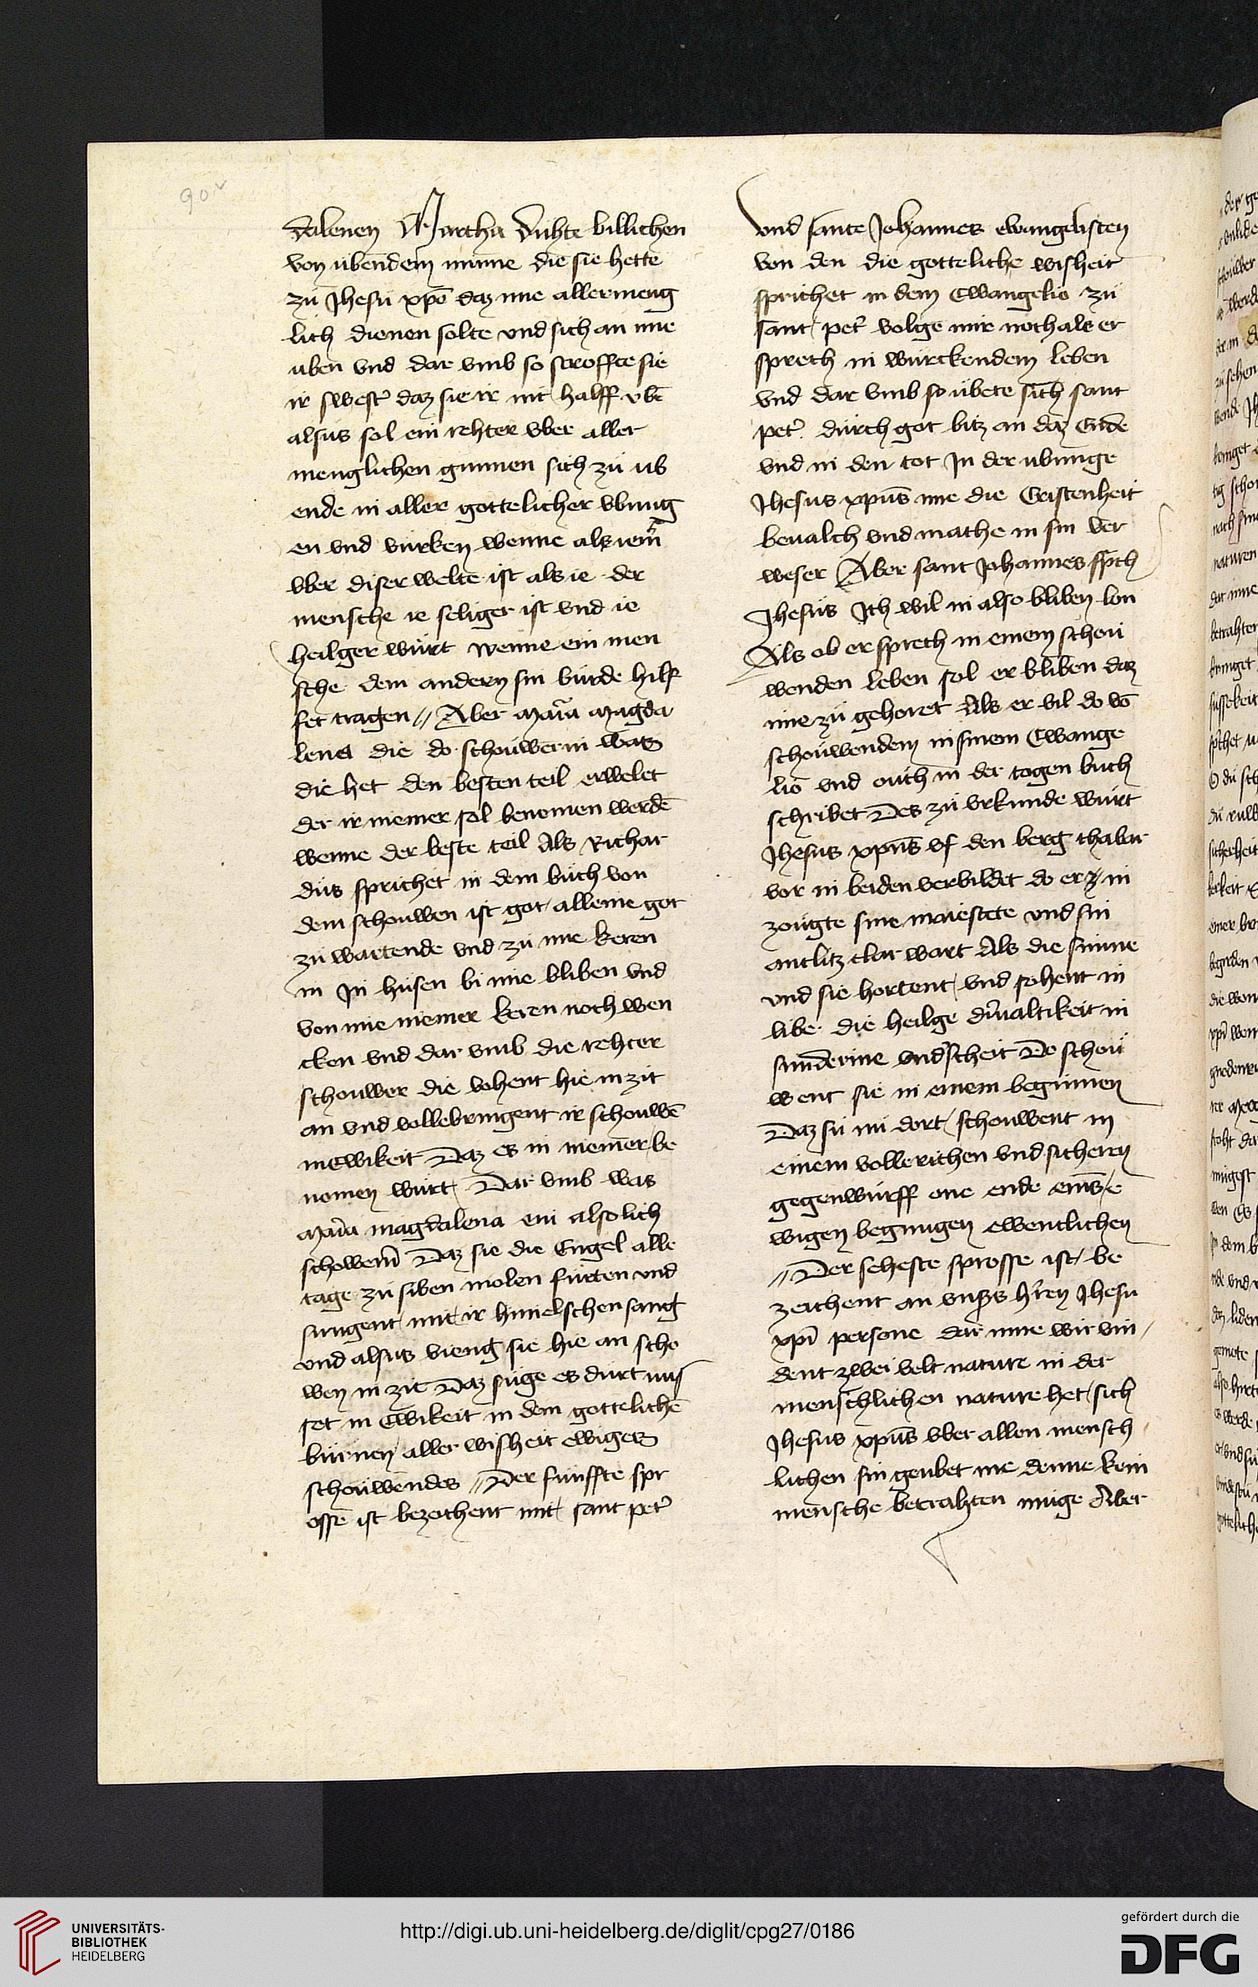 90v
dalenen Martha Duhte billichen
von ubendem minne die sie hette
zu Jhesu xpo daz ime allermeng
lich dienen solte vnd sich an ime
uben vnd dar vmb so stroffte sie
ir swest daz sie ir nit halff vbē
alsus sol ein rehter vber aller
menglichen gunnen sich zu ub
ende in aller gottelicher vbung
en vnd wurken wenne als iem̄
vber diser welte ist als ie der
mensche ie seliger ist vnd ie
heilger wurt wenne ein men
sche dem andern sin burde hilf
fet tragen // Aber maria magda
lena die do schouwerin waz
die het den besten teil erwelet
der ir niemer sol benomen werdē
wenne der beste teil Als Richar
dus sprichet in dem buch von
dem schouwen ist got alleine got
zu wartende vnd zu ime keren
in In husen bi ime bliben vnd
von ime niemer keren noch wen
cken vnd dar vmb die rehter
schouwer die vohent hie in zit
an vnd vollebringent ir schouwē
in ewikeit Daz es in niemer be
nomen wurt Dar vmb was
maria magdalena ein alsolich
schowerin Daz sie die Engel alle
tage zu siben molen furten vnd
sungent mit ir himelschen sang
vnd alsus vieng sie hie an scho
wen in zit Daz fuge es durt
set in Ewikeit in dem gottelichē
burnen aller wisheit ewigez
schouwendes // Der funffte spr
osse ist bezeichent mit sant pet
vnd sante Johannes ewangelisten
von den die gotteliche wisheit
sprichet in dem Ewangelio zu
sant pet volge mir noch als er
sprech in wurckendem leben
vnd dar vmb so ubete sich sant
pet durch got bitz an daz Ende
vnd in den tot In der ubunge
Jhesus xpus ime die Cristenheit
beualch vnd mathe in sin ver
weser Aber sant Johannes spch
Jhesus Ich wil in also bliben lon
Als ob er sprech in einem schou
wenden leben sol er bliben daz
ime zu gehoret Als er vil do vō
schouwendem in sinem Ewange
lio vnd ouch in der togen buch
schribet Des zu vrkunde wurt
Jhesus xpus vf den berg thabor
vor in beiden verbildet do er in
zougte sine maiestete vnd sin
antlitz clar wart Als die sunne
vnd sie hortent vnd sohent in
libe die heilge driualtikeit in
sunderme vndscheit Do schou
went sie in einem beginnen
Daz su nu dort schouwent in
einem vollerichen vnd sicheren
gegenwurff one ende eins e
wigen begnugen ewentlichen
// Der seheste sprosse ist be
zeichent an vnss hren Jhesu
xpi persone dar inne wir vin
dent zweiuelt nature in der
menschlichen nature het sich
Jhesus xpus vber allen mensch
lichen sin geubet me denne kein
mensche betrahten muge Aber
UNIVERSITÄTS-
BIBLIOTHEK
HEIDELBERG
http://digi.ub.uni-heidelberg.de/diglit/cpg27/0186
gefördert durch die
DFG